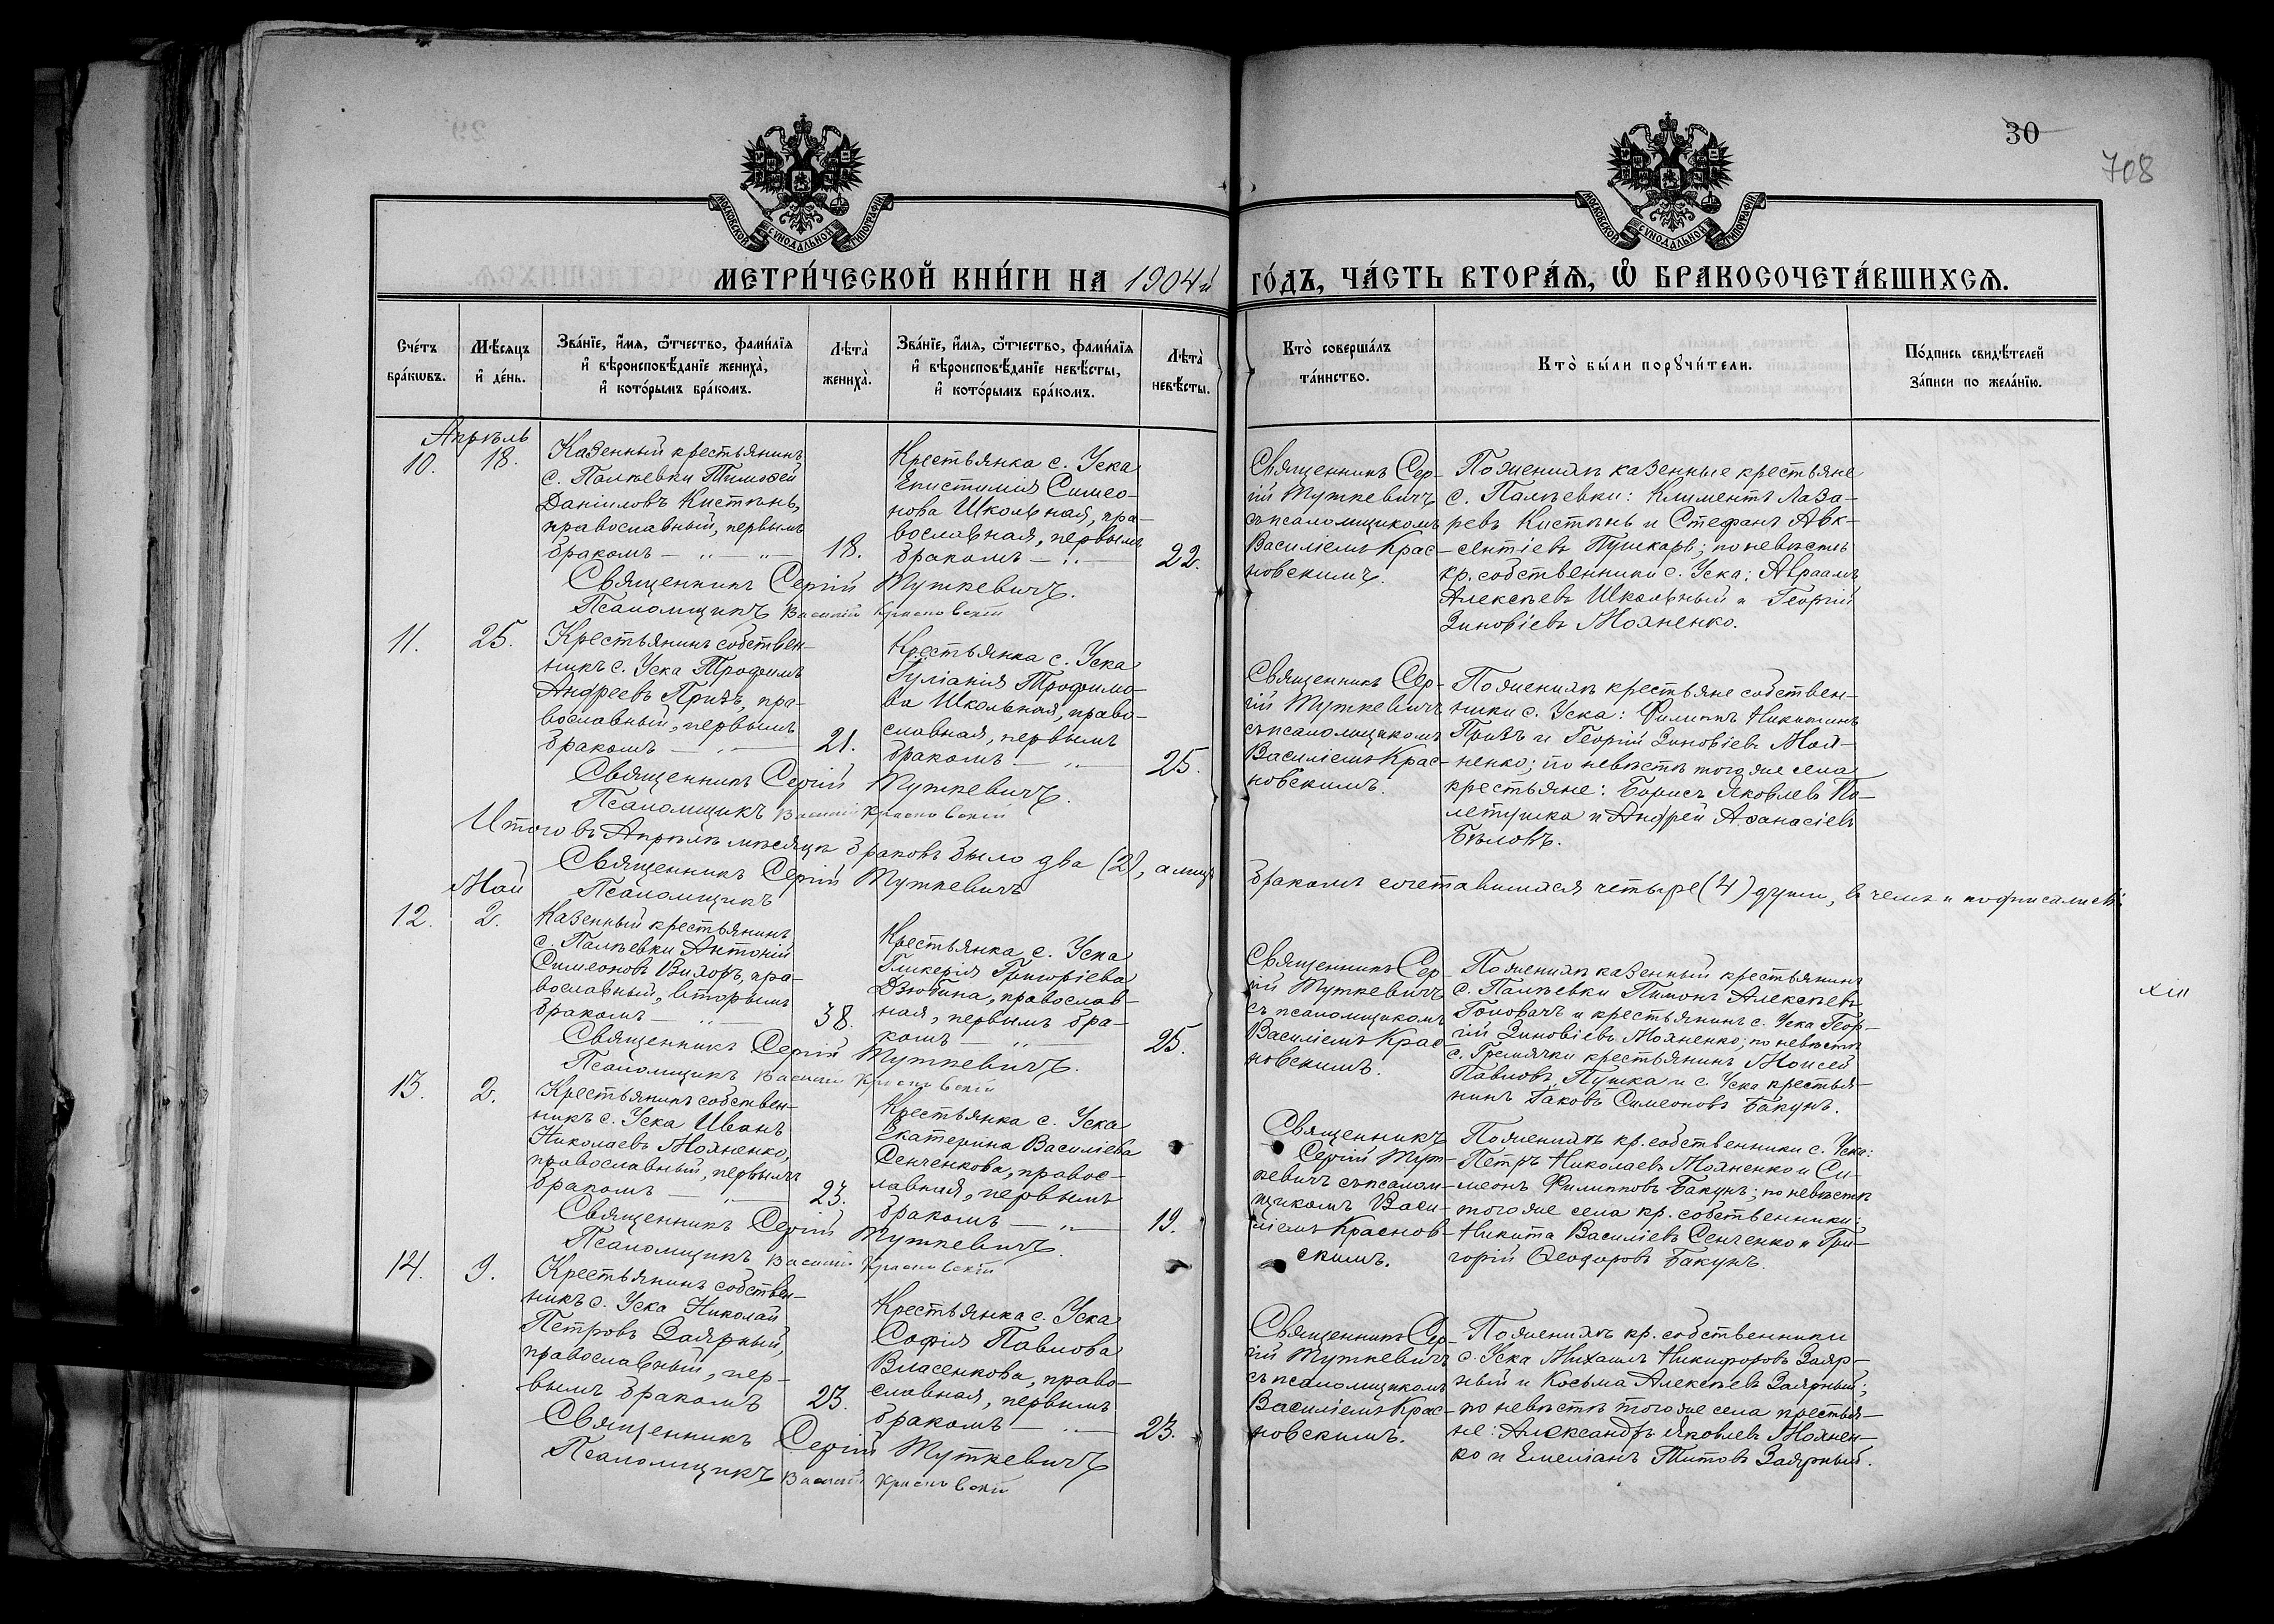 30
708
МОСКОВСКОЙ СѴНОДАЛЬНОЙ ТИПОГРАФІИ
МОСКОВСКОЙ СѴНОДАЛЬНОЙ ТИПОГРАФІИ
МЕТРИ́ЧЕСКОЙ КНИ́ГИ НА 1904й
ГО́ДЪ, ЧА́СТЬ ВТОРА́Ѧ, Ѽ БРАКОСОЧЕТА́ВШИХСѦ.
Сче́тъ бра́кѡвъ.
Мѣ́сяцъ и҆ де́нь.
Зва́нїе, и҆́мѧ, ѻ҆́тчество, фами́лїѧ и҆ вѣроисповѣ́данїе жениха̀, и҆ кото́рымъ бра́комъ.
Лѣта̀ жениха̀.
Зва́нїе, и҆́мѧ, ѻ҆́тчество, фами́лїѧ и҆ вѣроисповѣ́данїе невѣ́сты, и҆ кото́рымъ бра́комъ.
Лѣта̀ невѣ́сты.
Кто̀ соверша́лъ та́инство.
Кто̀ бы́ли порꙋчи́тели.
По́дпись свидѣ́телей за́писи по жела́нїю.
Апрѣль
10.
18.
Казенный крестьянинъ
с. Палѣевки Тимоѳей
Даніиловъ Кистѣнь,
православный, первымъ
бракомъ — „ — „ —
18.
Крестьянка с. Уска
Епистимія Симео-
нова Школьная, пра-
вославная, первымъ
бракомъ — „ —
22.
Священникъ Сер-
гій Туткевичъ
съ псаломщикомъ
Василіемъ Крас-
новскимъ.
По женихѣ казенные крестьяне
с. Палѣевки: Климентъ Лаза-
ревъ Кистѣнь и Стефанъ Авк-
сентіевъ Пушкарь; по невѣстѣ
кр. собственники с. Уска: Авраамъ
Алексѣевъ Школьный и Георгій
Зиновіевъ Мохненко.
Священникъ Сергій Туткевичъ.
Псаломщикъ Василій Красновскій
11.
25.
Крестьянинъ собствен-
никъ с. Уска Трофимъ
Андреевъ Призъ, пра-
вославный, первымъ
бракомъ — „ —
21.
Крестьянка с. Уска
Іуліанія Трофимо-
ва Школьная, право-
славная, первымъ
бракомъ — „ —
25.
Священникъ Сер-
гій Туткевичъ
съ псаломщикомъ
Василіемъ Крас-
новскимъ.
По женихѣ крестьяне собствен-
ники с. Уска: Филиппъ Никитинъ
Призъ и Георгій Зиновіевъ Мох-
ненко; по невѣстѣ того же села
крестьяне: Борисъ Яковлевъ По-
летушка и Андрей Аѳанасіевъ
Бѣловъ.
Священникъ Сергій Туткевичъ.
Псаломщикъ Василій Красновскій
Итого въ Апрѣлѣ мѣсяцѣ браковъ было два (2), а лицъ
бракомъ сочетавшихся четыре (4) души, въ чемъ и подписались:
Священникъ Сергій Туткевичъ
Псаломщикъ
Май
12.
2.
Казенный крестьянинъ
с. Палѣевки Антоній
Симеоновъ Вихорь, пра-
вославный, вторымъ
бракомъ — „ —
38.
Крестьянка с. Уска
Гликерія Григоріева
Дзюбина, православ-
ная, первымъ бра-
комъ — „ —
25.
Священникъ Сер-
гій Туткевичъ
съ псаломщикомъ
Василіемъ Крас-
новскимъ.
По женихѣ казенный крестьянинъ
с. Палѣевки Пимонъ Алексѣевъ
Головачъ и крестьянинъ с. Уска Геор-
гій Зиновіевъ Мохненко; по невѣстѣ
с. Гремячки крестьянинъ Моисей
Павловъ Пушка и с. Уска крестья-
нинъ Іаковъ Симеоновъ Бакунъ.
Священникъ Сергій Туткевичъ.
Псаломщикъ Василій Красновскій
13.
2.
Крестьянинъ собствен-
никъ с. Уска Иванъ
Николаевъ Мохненко,
православный, первымъ
бракомъ — „ —
23.
Крестьянка с. Уска
Екатерина Василіева
Сенченкова, правос-
лавная, первымъ
бракомъ — „ —
19.
Священникъ
Сергій Тут-
кевичъ съ псалом-
щикомъ Васи-
ліемъ Краснов-
скимъ.
По женихѣ кр. собственники с. Уска:
Петръ Николаевъ Мохненко и Си-
меонъ Филипповъ Бакунъ; по невѣстѣ
того же села кр. собственники:
Никита Василіевъ Сенченко и Гри-
горій Ѳеодоровъ Бакунъ.
Священникъ Сергій Туткевичъ.
Псаломщикъ Василій Красновскій
14.
9.
Крестьянинъ собствен-
никъ с. Уска Николай
Петровъ Заярный,
православный, пер-
вымъ бракомъ
23.
Крестьянка с. Уска
Софія Павлова
Власенкова, право-
славная, первымъ
бракомъ — „ —
23.
Священникъ Сер-
гій Туткевичъ
съ псаломщикомъ
Василіемъ Крас-
новскимъ.
По женихѣ кр. собственники
с. Уска Михаилъ Никифоровъ Заяр-
ный и Косьма Алексѣевъ Заярный;
по невѣстѣ того же села крестья-
не: Александръ Яковлевъ Мохнен-
ко и Емеліанъ Титовъ Заярный.
Священникъ Сергій Туткевичъ
Псаломщикъ Василій Красновскій